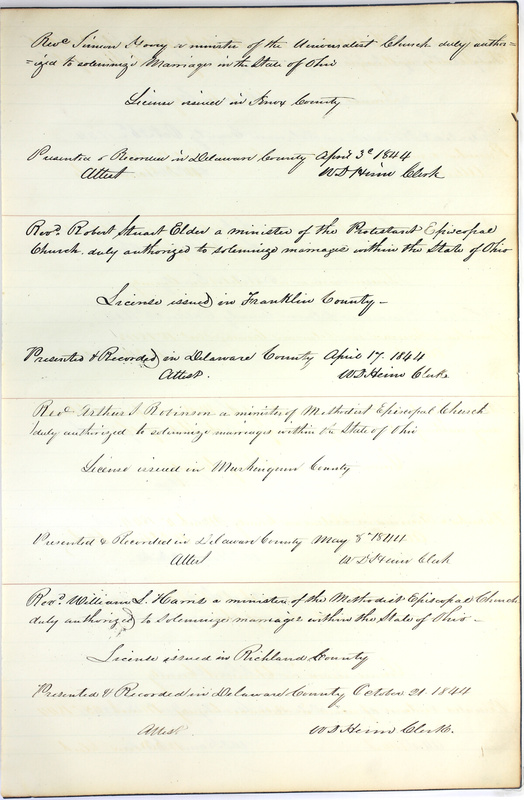 Revd Simeon a minister of the Universalist Church duly author=
=ized to solemnize Marriages in the State of Ohio
License issued in Knox County
Presented & Recorded in Delaware County April 3d 1844
Attest W D Heim Clerk
Revd. Robert Stuart Elder a minister of the Protestant Episcopal
Church duly authorized to solemnize marriages within the State of Ohio
License issued in Franklin County —
Presented & Recorded in Delaware County April 17. 1844
Attest. W D Heim Clerk
Revd Arthur J Robinson a minister of Methodist Episcopal Church
duly authorized to solemnize marriages within the State of Ohio
License issued in Muskingum County
Presented & Recorded in Delaware County May 8th 1844
Attest W D Heim Clerk
Revd. William L. Harris a minister of the Methodist Episcopal Church
duly authorized to Solemnize marriages within the State of Ohio —
License issued in Richland County
Presented & Recorded in Delaware County October 21. 1844
Attest W D Heim Clerk.